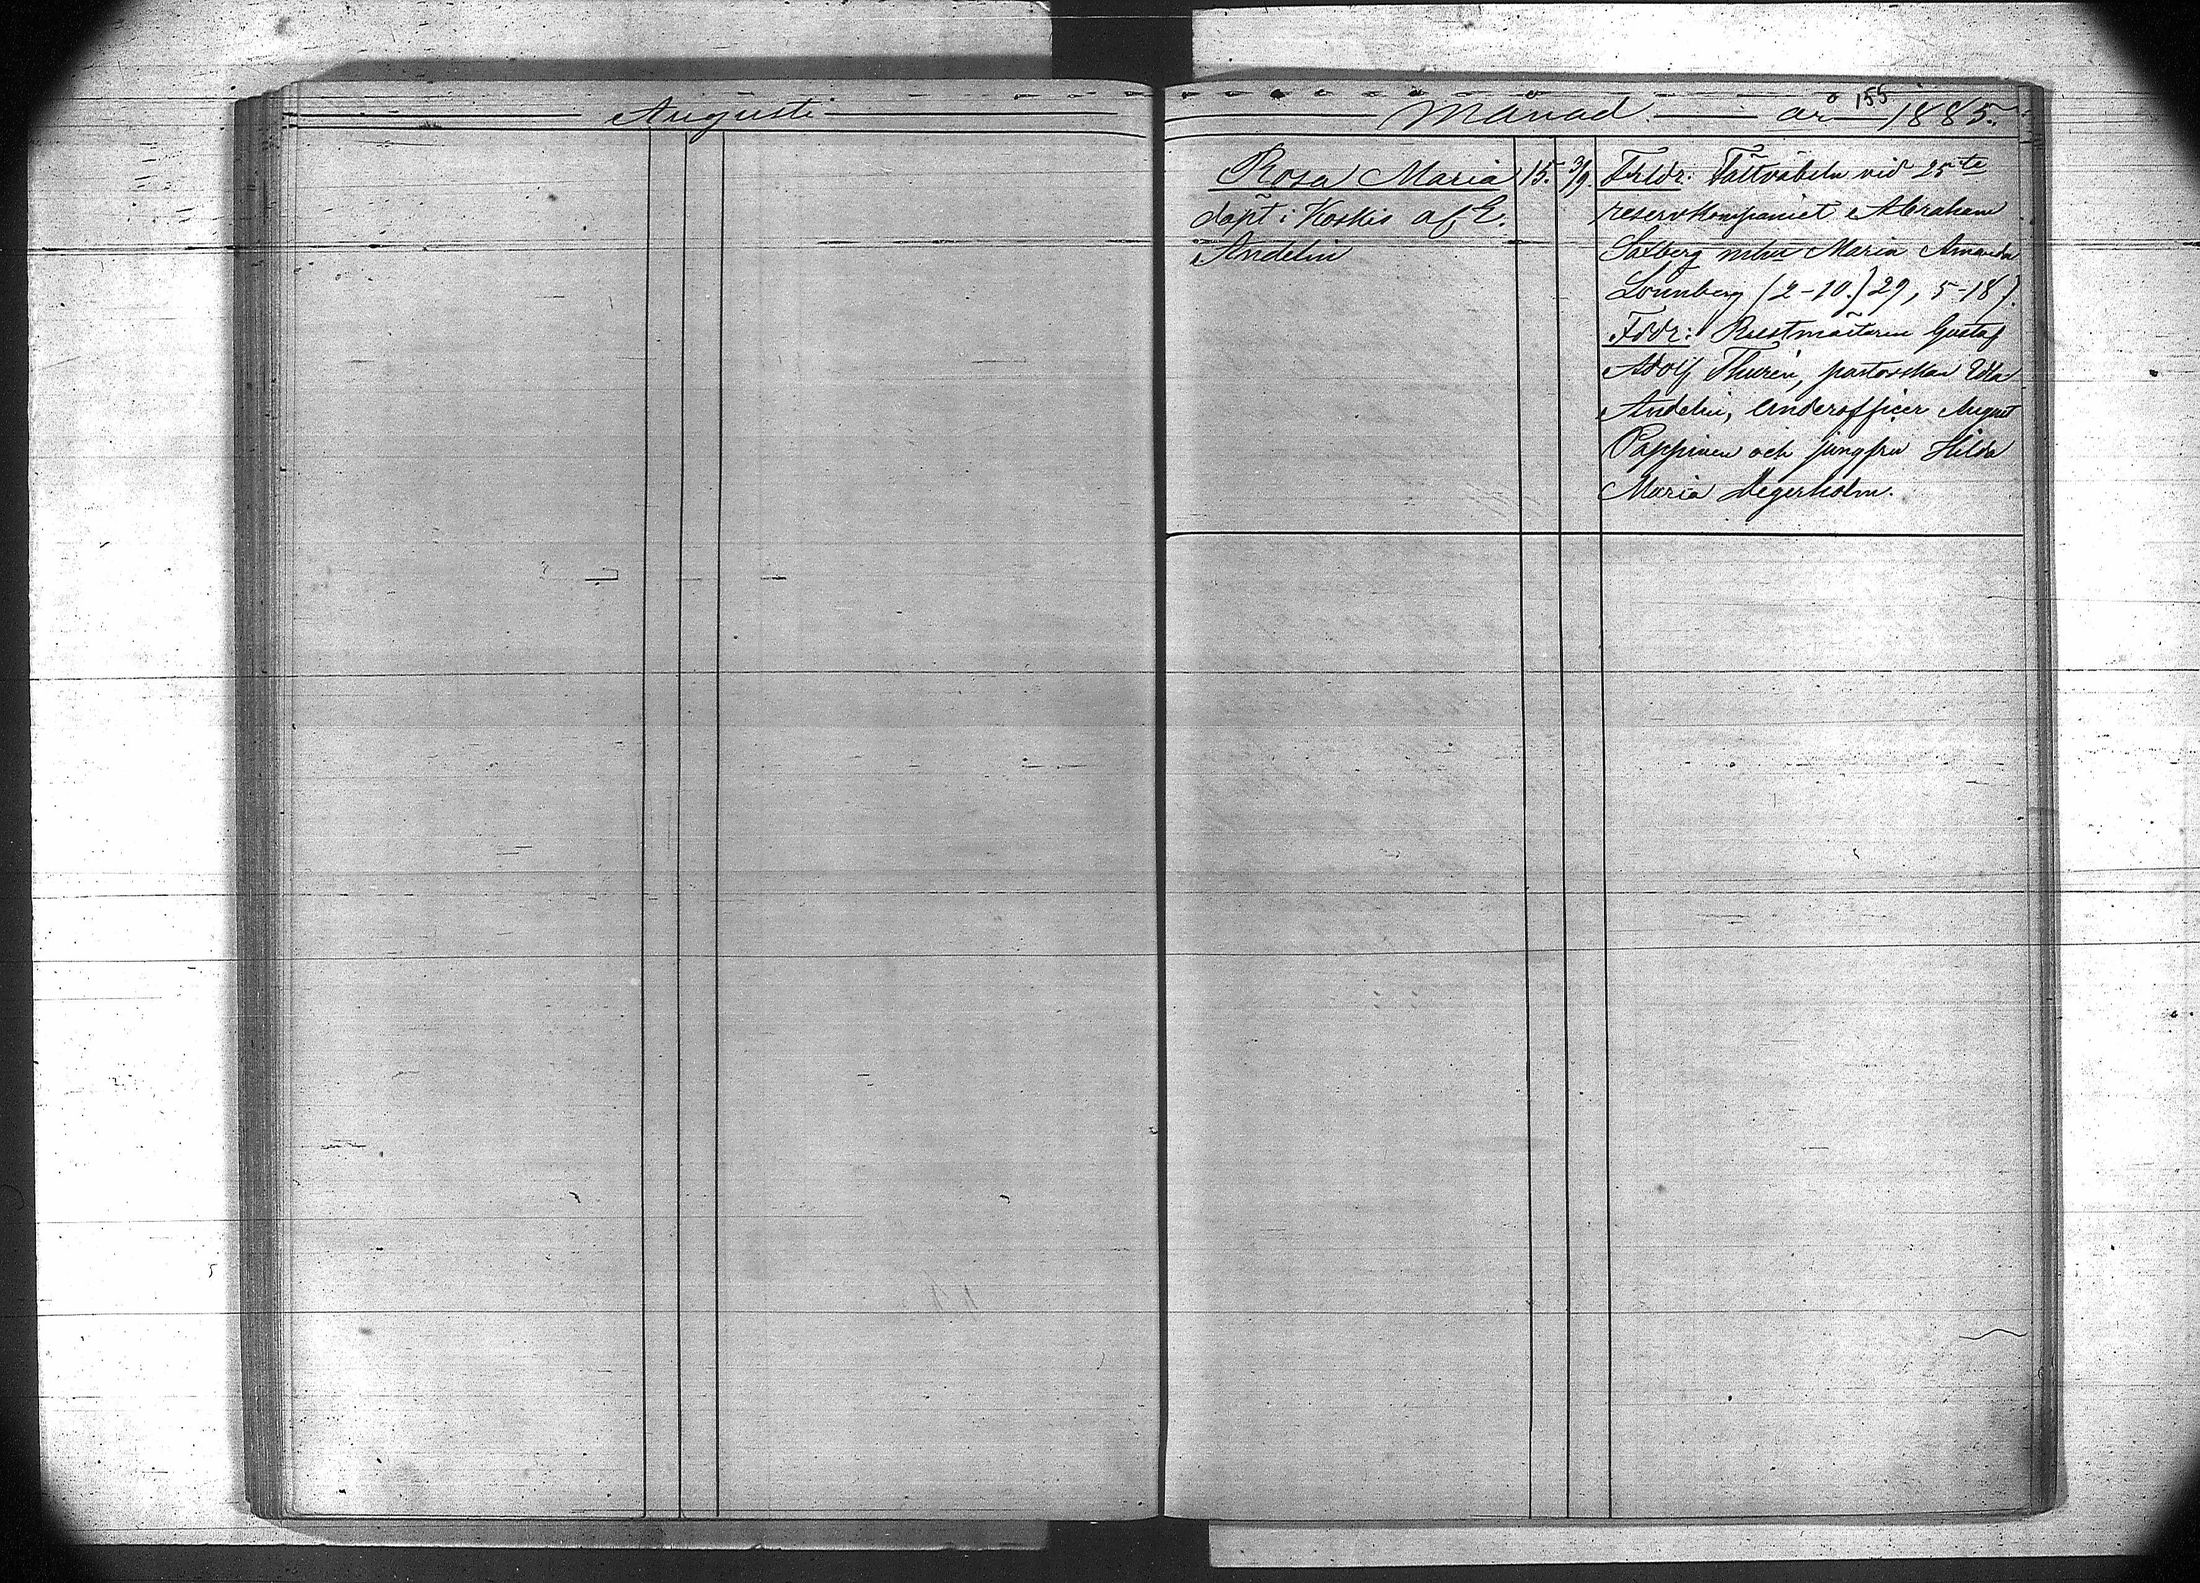 Augusti
Månad. år 1885.
155
Rosa Maria 15. 3/9.
döpt i Koskis af E.
Andelin
Frldr: Fältväbeln vid 25te
reservkompaniet Abraham
Saxberg mhu Maria Amanda
Lönnberg (2-10.) 29, 5-18).
Fddr: Rustmästaren Gustaf
Adolf Thurén, pastorskan Edla
Andelin, Underofficer August
Pappinen och jungfru Hilda
Maria Degerholm.